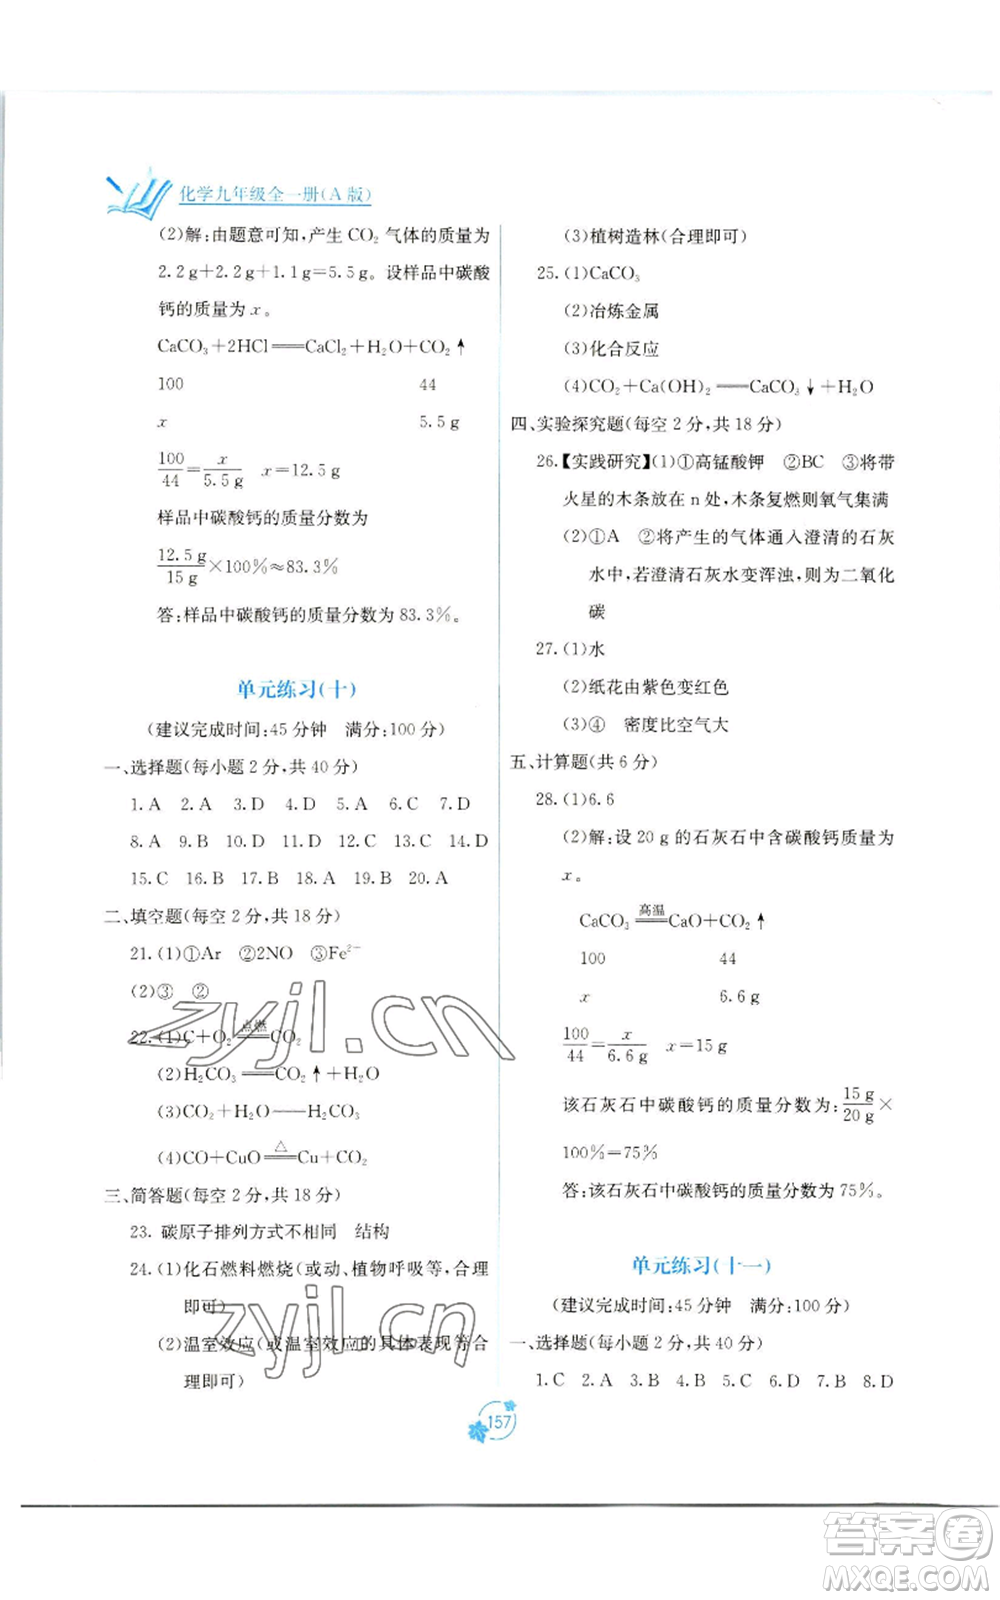 化学九年级全一册(A版)
(2)解:由题意可知,产生 CO₂ 气体的质量为
2.2 g+2.2 g+1.1 g=5.5 g。设样品中碳酸
钙的质量为 x。
CaCO₃+2HCl══CaCl₂+H₂O+CO₂↑
100 44
x 5.5 g
100/44=x/5.5 g x=12.5 g
样品中碳酸钙的质量分数为
12.5 g/15 g×100%≈83.3%
答:样品中碳酸钙的质量分数为 83.3%。
单元练习(十)
(建议完成时间:45分钟 满分:100分)
一、选择题(每小题2分,共40分)
1. A 2. A 3. D 4. D 5. A 6. C 7. D
8. A 9. B 10. D 11. D 12. B 13. C 14. D
15. C 16. B 17. B 18. A 19. C 20. A
二、填空题(每空2分,共18分)
21. (1)①Ar ②2NO ③Fe²⁻
(2)③ ②
22. (1)C+O₂══点燃══CO₂
(2)H₂CO₃══CO₂↑+H₂O
(3)CO₂+H₂O──H₂CO₃
(4)CO+CuO══△══Cu+CO₂
三、简答题(每空2分,共18分)
23. 碳原子排列方式不相同 结构
24. (1)化石燃料燃烧(或动、植物呼吸等,合理
即可)
(2)温室效应(或温室效应的具体表现等合
理即可)
(3)植树造林(合理即可)
25. (1)CaCO₃
(2)冶炼金属
(3)化合反应
(4)CO₂+Ca(OH)₂══CaCO₃↓+H₂O
四、实验探究题(每空2分,共18分)
26.【实践研究】(1)①高锰酸钾 ②BC ③将带
火星的木条放在 n 处,木条复燃则氧气集满
(2)①A ②将产生的气体通入澄清的石灰
水中,若澄清石灰水变浑浊,则为二氧化
碳
27. (1)水
(2)纸花由紫色变红色
(3)④ 密度比空气大
五、计算题(共6分)
28. (1)6.6
(2)解:设 20 g 的石灰石中含碳酸钙质量为
x。
CaCO₃══高温══CaO+CO₂↑
100 44
x 6.6 g
100/44=x/6.6 g x=15 g
该石灰石中碳酸钙的质量分数为:15 g/20 g×
100%=75%
答:该石灰石中碳酸钙的质量分数为75%。
单元练习(十一)
(建议完成时间:45分钟 满分:100分)
一、选择题(每小题2分,共40分)
1. C 2. A 3. B 4. C 5. A 6. D 7. B 8. D
157
zyjl.cn
zyjl.cn
答案卷
MXQE.COM